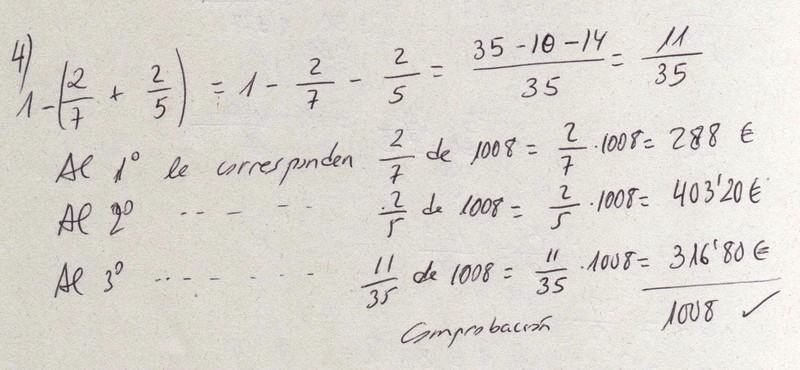 4)
1-(2/7 + 2/5) = 1 - 2/7 - 2/5 = (35-10-14)/35 = 11/35
Al 1º le corresponden 2/7 de 1008 = 2/7 · 1008 = 288 €
Al 2º ·· - - - 2/5 de 1008 = 2/5 · 1008 = 403'20 €
Al 3º ···· - - - - 11/35 de 1008 = 11/35 · 1008 = 316'80 €
Comprobación 1008 ✓